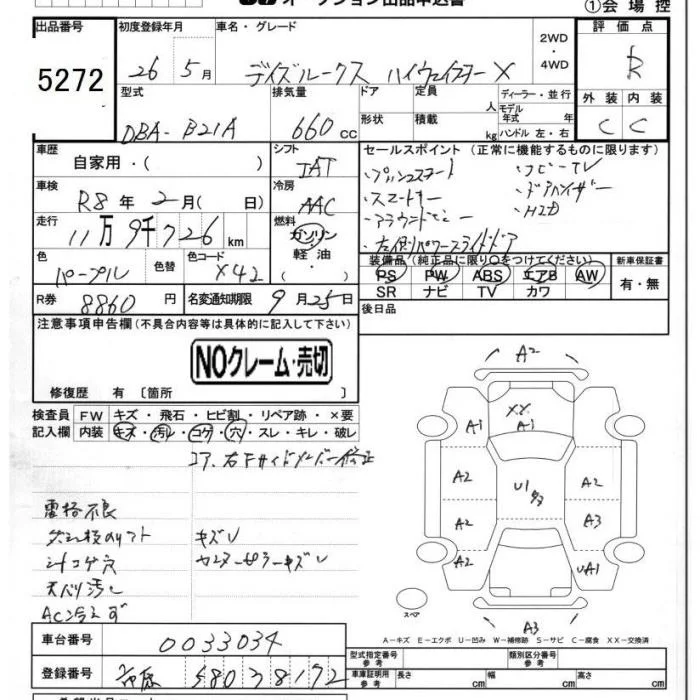 オークション出品申込書
①会場控
出品番号 初度登録年月 車名・グレード 2WD ・ 4WD 評価点
5272 26年 5月 デイズルークス ハイウェイスターX R
型式 排気量 ドア 定員 人 ディーラー・並行 外装 内装
DBA-B21A 660cc 形状 積載 kg モデル年式 年 ハンドル 左・右 C C
車歴 自家用・( ) シフト IAT セールスポイント(正常に機能するものに限ります)
・プッシュスタート ・フビーTV
・スマートキー ・ドアバイザー
・アラウンドモニター ・HID
・左側パワースライドドア
車検 R8年 2月( 日) 冷房 AAC
走行 11万9千726km 燃料 ガソリン・軽油・
色 パープル 色替 色コード X42
装備品(純正品に限り○をつけてください) 新車保証書
PS PW ABS エアB AW 有・無
SR ナビ TV カワ
R券 8860円 名変通知期限 9月25日
後日品
注意事項申告欄(不具合内容等は具体的に記入して下さい)
NOクレーム・売切
修復歴 有〔箇所 〕
検査員記入欄 FW キズ・飛石・ヒビ割・リペア跡・×要
内装 キズ・汚レ・コゲ・穴・スレ・キレ・破レ
コア、右Fサイドメンバー修正
電格不良
シートコゲ穴 キズU
天バリ汚レ
AC冷えず
A2
XX
A1 A1
A2 U1 A2
A2 A3
A2 UA1
スペア
A3
A-キズ E-エクボ U-凹み W-補修跡 S-サビ C-腐食 XX-交換済
車台番号 0033034
登録番号 580 38172
型式指定番号 参考 類別区分番号 参考
車庫証明用 参考 長さ cm 幅 cm 高さ cm